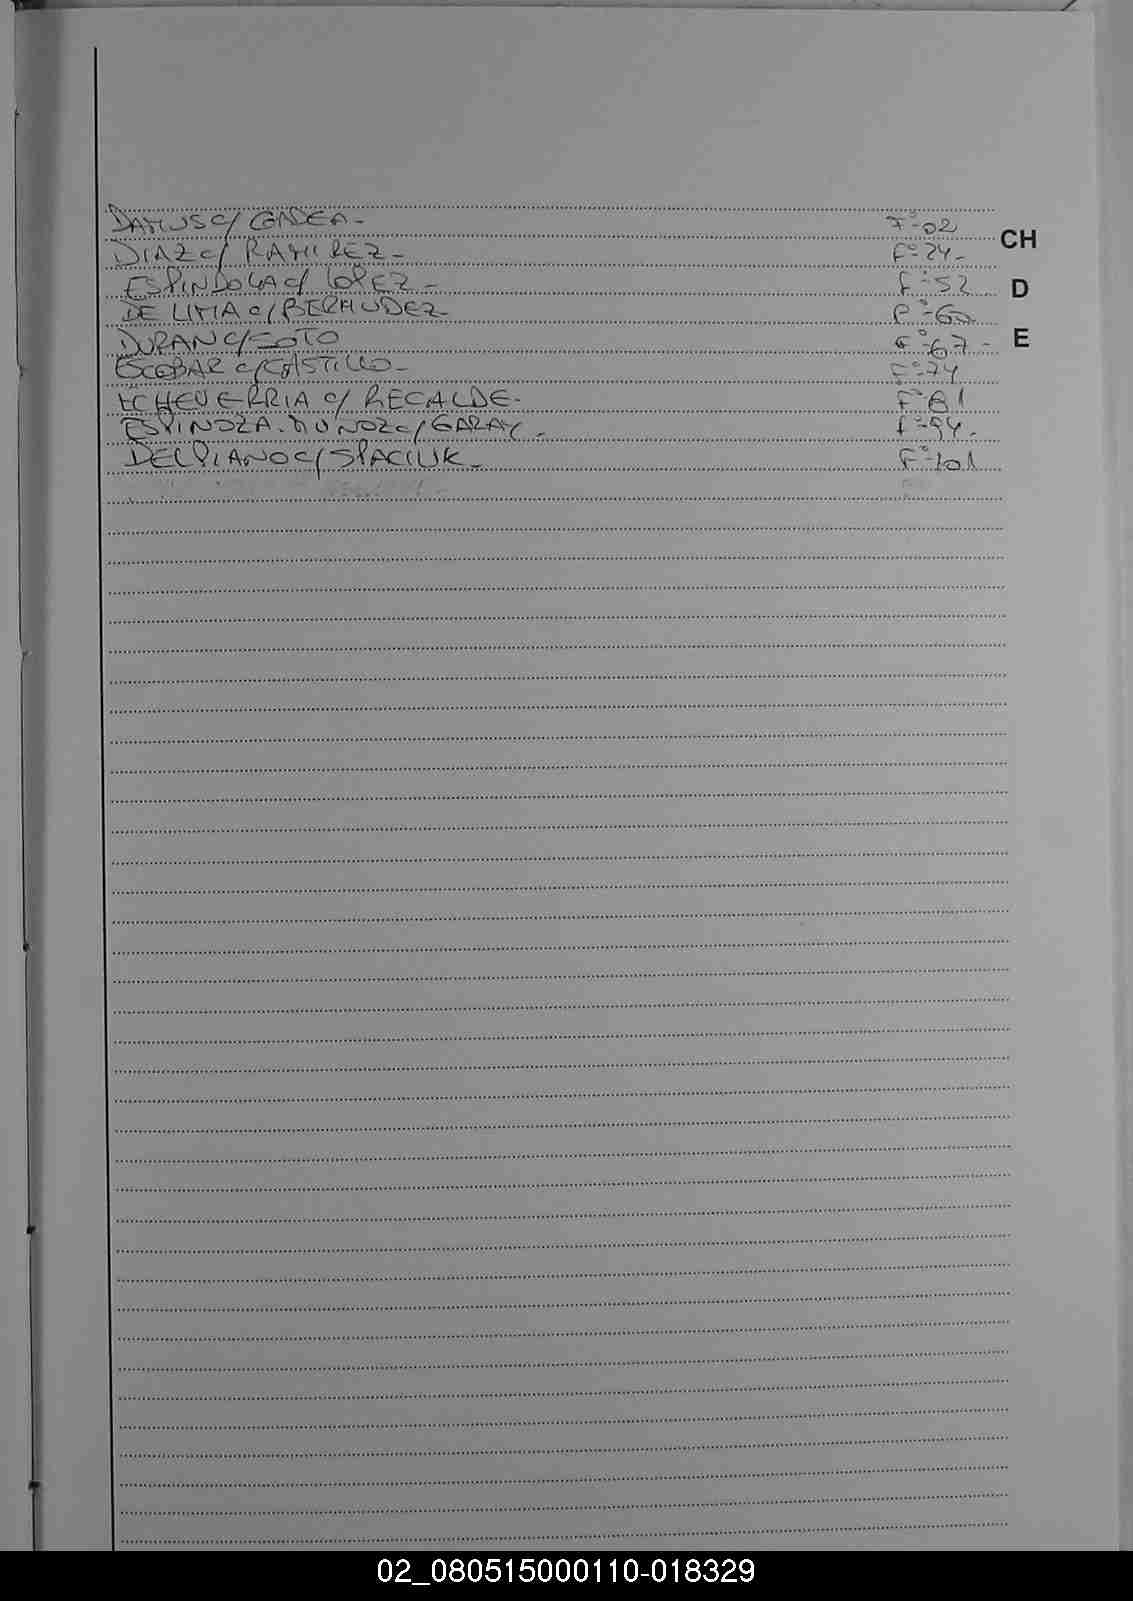 DAMUS c/ GADEA - F° 02
CH
DIAZ c/ RAMIREZ - F° 24 -
ESPINDOLA c/ LOPEZ - F° 52
D
DE LIMA c/ BERMUDEZ - F° 60
DURAN c/ SOTO F° 67 -
E
ESCOBAR c/ CASTILLO - F° 74
ECHEVERRIA c/ RECALDE - F° 81
ESPINOZA MUNOZ c/ GARAY - F° 94 -
DELPIANO c/ SPACIUK - F° 101
02_080515000110-018329